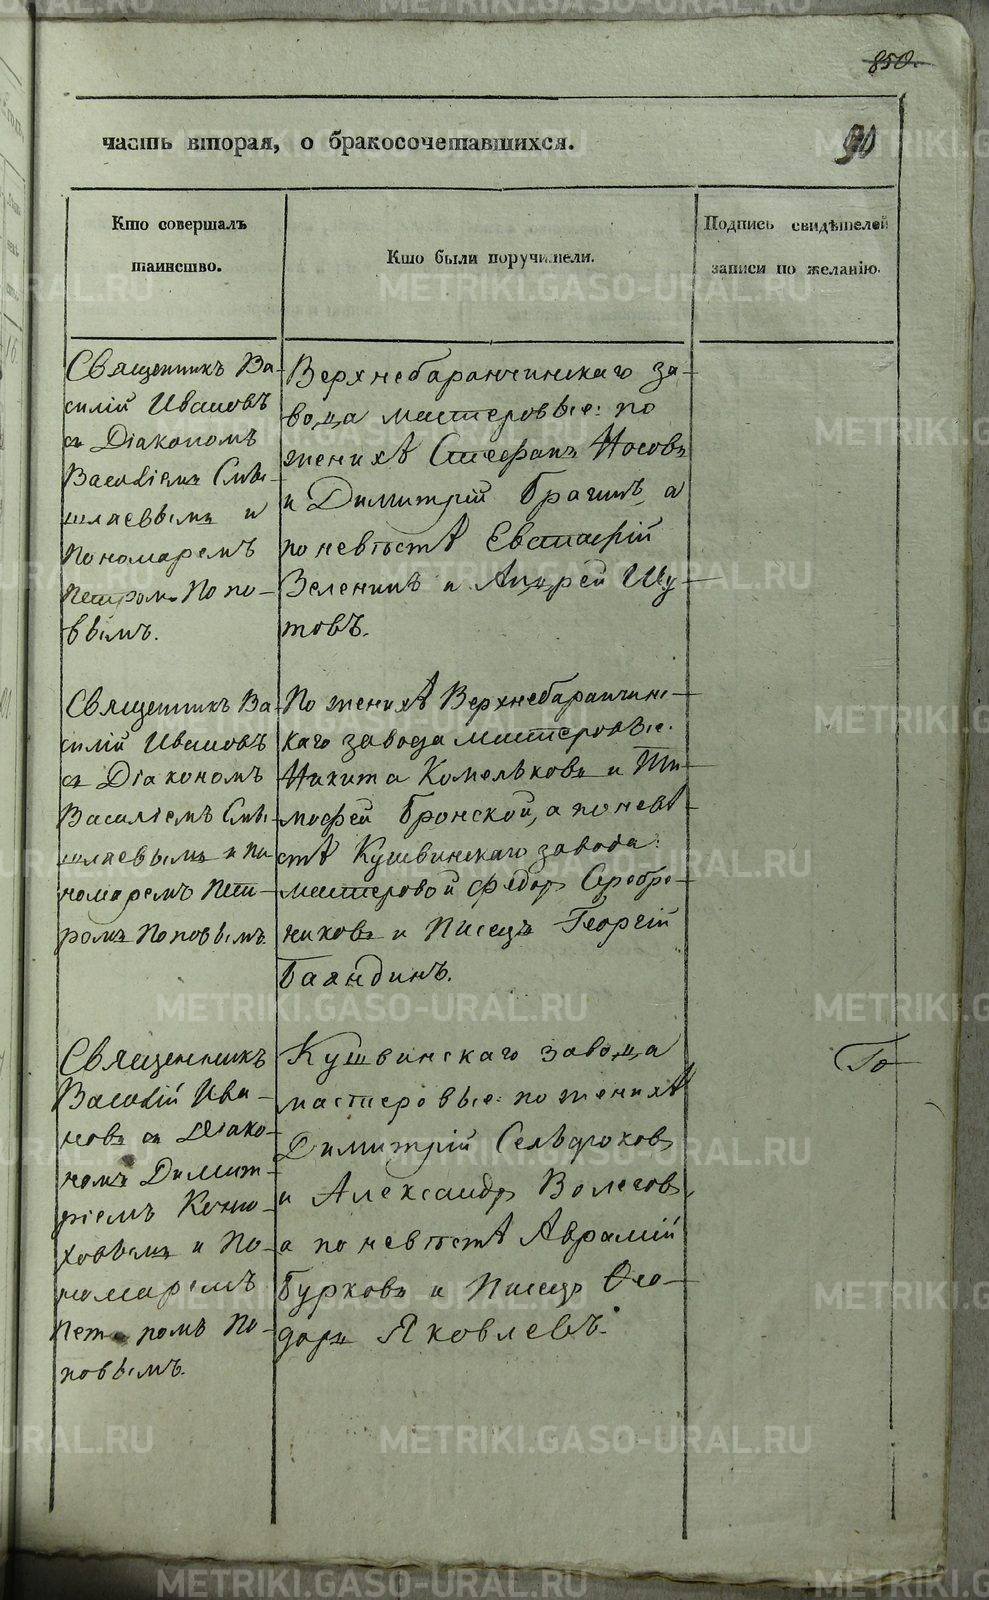 850.
90
часть вторая, о бракосочетавшихся.
Кто совершалъ
таинство.
Кто были поручители.
Подпись свидѣтелей
записи по желанію.
Священникъ Ва-
силій Ивановъ
съ Діакономъ
Василіемъ Смы-
шляевымъ и
Пономаремъ
Петромъ Попо-
вымъ.
Верхнебаранчинскаго за-
вода мастеровые: по
женихѣ Стефанъ Носовъ
и Димитрій Брагинъ, а
по невѣстѣ Евстафій
Зеленинъ и Андрей Шу-
товъ.
Священникъ Ва-
силій Ивановъ
съ Діакономъ
Василіемъ Смы-
шляевымъ и По
номаремъ Пет-
ромъ Поповымъ.
По женихѣ Верхнебаранчинс-
каго завода мастеровые:
Никита Комельковъ и Ти-
мофей Бронской, а по невѣ-
стѣ Кушвинскаго завода:
мастеровой Федоръ Серебре-
никовъ и Писецъ Георгій
Баяндинъ.
Священникъ
Василій Ива-
новъ съ Діако-
номъ Димит-
ріемъ Коню-
ховымъ и По-
номаремъ
Петромъ По-
повымъ.
Кушвинскаго завода
мастеровые: по женихѣ
Димитрій
и Александръ Волеговъ,
а по невѣстѣ Аврамій
Бурковъ и Писецъ Ѳео-
доръ Яковлевъ.
Го
METRIKI.GASO-URAL.RU